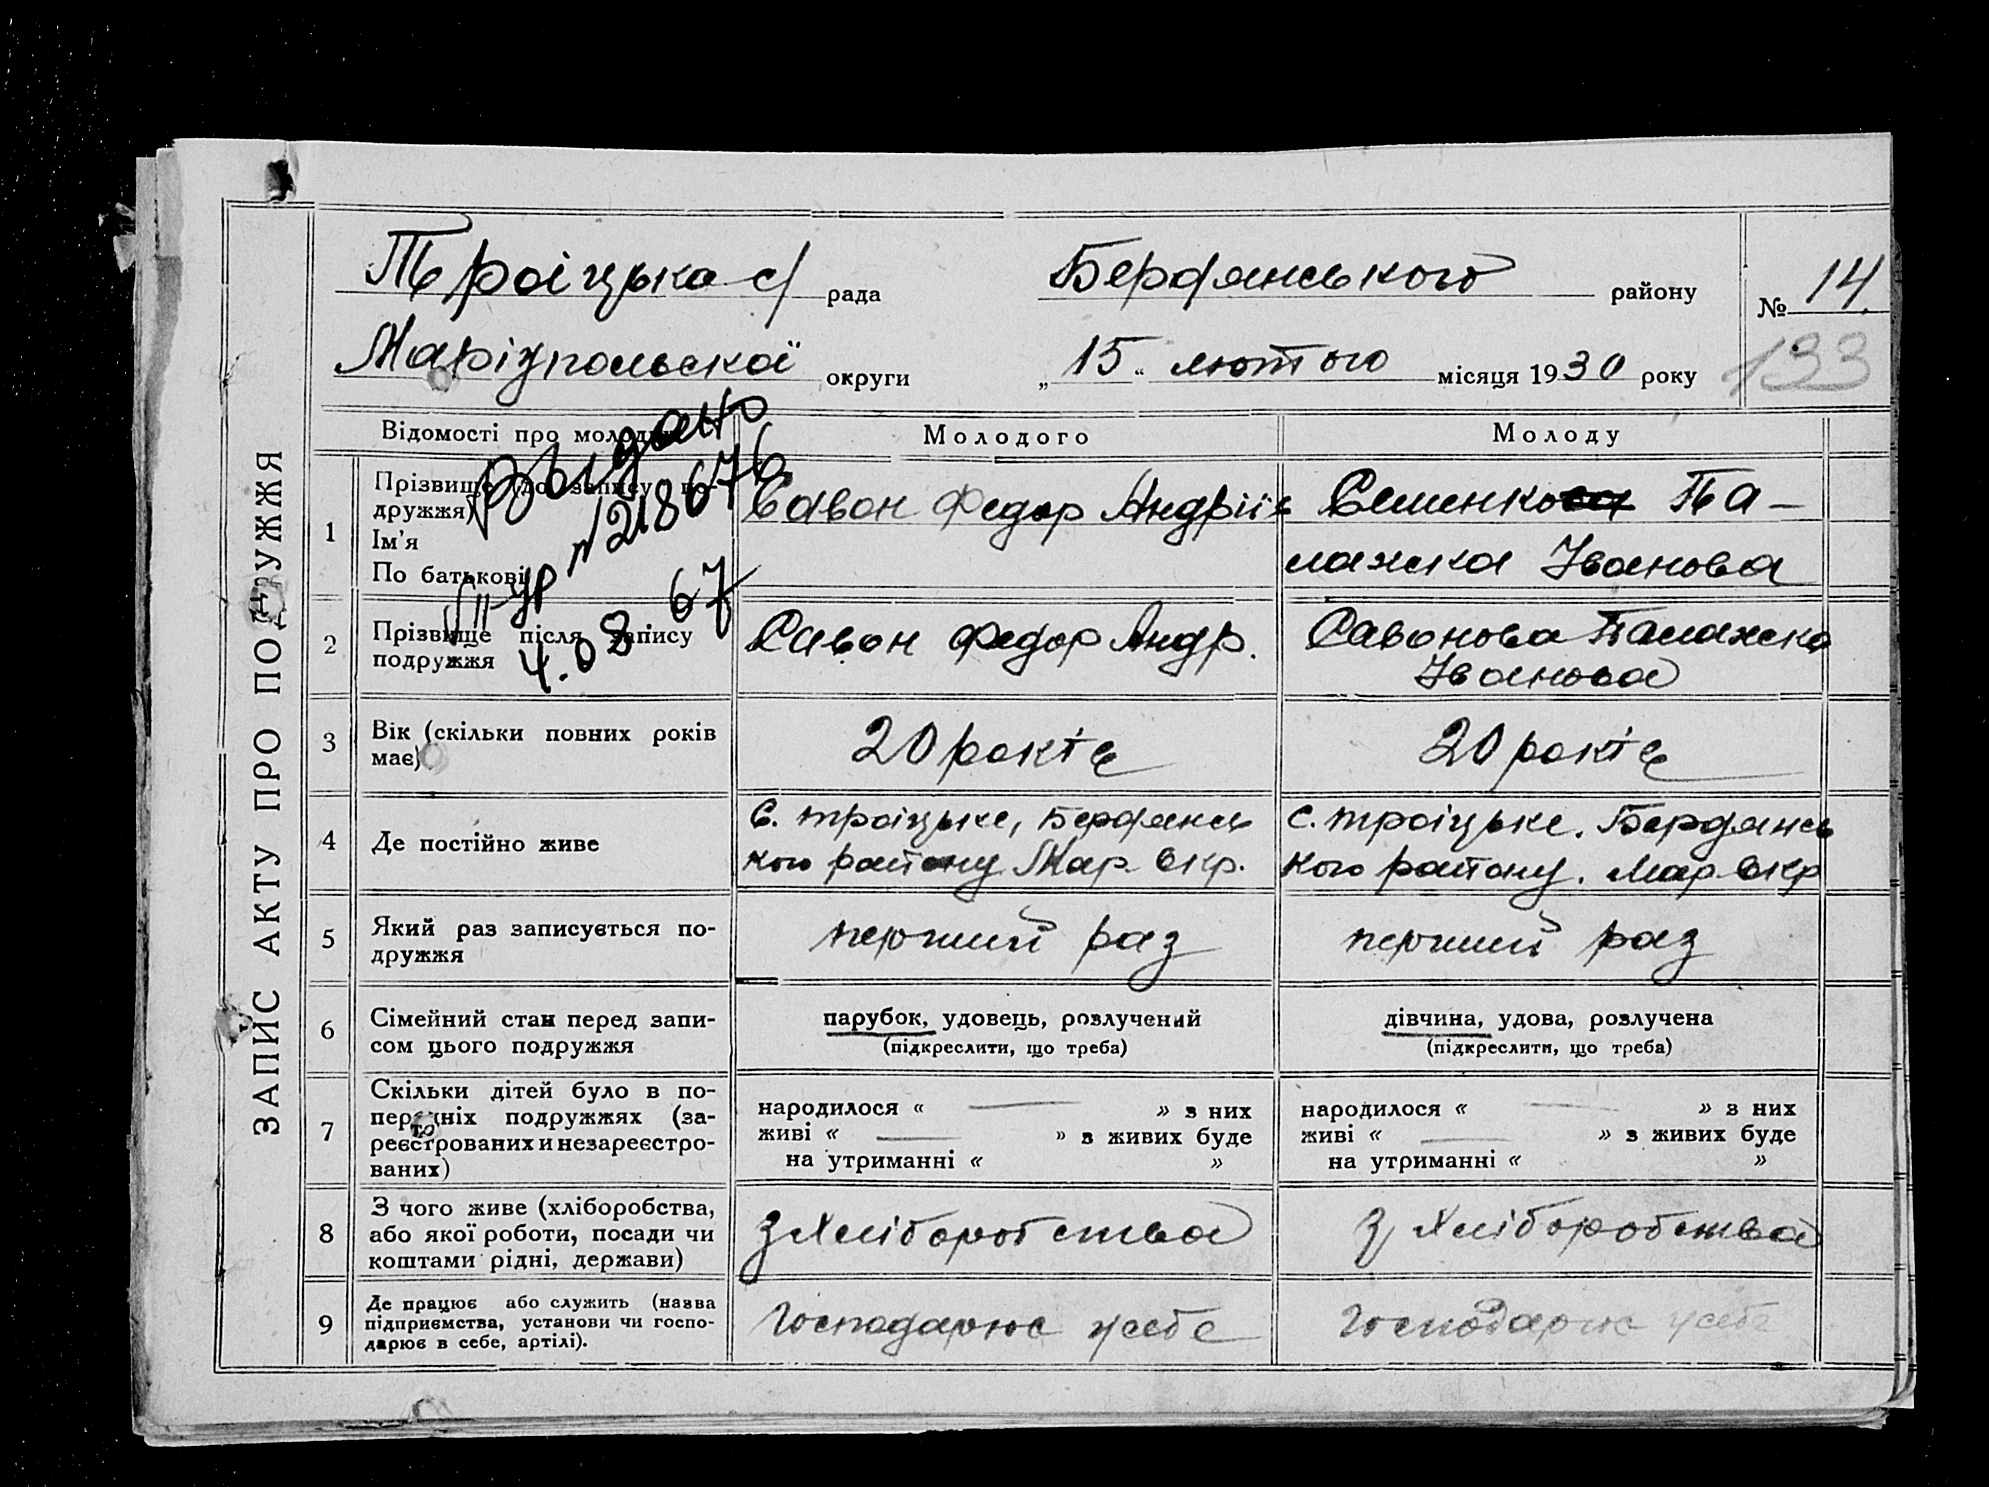 ЗАПИС АКТУ ПРО ПОДРУЖЖЯ
Троіцька с/ рада Бердянського району № 14.
Маріупольскоï округи „15“ лютого місяця 1930 року 133
Відомості про молодих Молодого Молоду
Видано
№218676
4.08 67
1 Прізвище (до запису по-
дружжя)
Ім'я
По батькові
Савон Федор Андріїв
Семенкова Па-
лажка Іванова
2 Прізвище після запису
подружжя
Савон Федор Андр.
Савонова Палажка
Іванова
3 Вік (скільки повних років
має)
20 років
20 років
4 Де постійно живе
с. Троіцьке, Бердянсь
кого району Мар. Окр.
с. Троіцьке. Бердянсь
кого району. Мар. Окр
5 Який раз записується по-
дружжя
перший раз
перший раз
6 Сімейний стан перед запи-
сом цього подружжя
парубок, удовець, розлучений
(підкреслити, що треба)
дівчина, удова, розлучена
(підкреслити, що треба)
7 Скільки дітей було в по-
передніх подружжях (за-
реєстрованих и незареєстро-
ваних)
народилося « — » з них
живі « — » з живих буде
на утриманні « »
народилося « — » з них
живі « — » з живих буде
на утриманні « »
8 З чого живе (хліборобства,
або якої роботи, посади чи
коштами рідні, держави)
з Хліборобства
з Хліборобства
9 Де працює або служить (назва
підприємства, установи чи госпо-
дарює в себе, артілі).
Господарює у себе
Господарює у себе